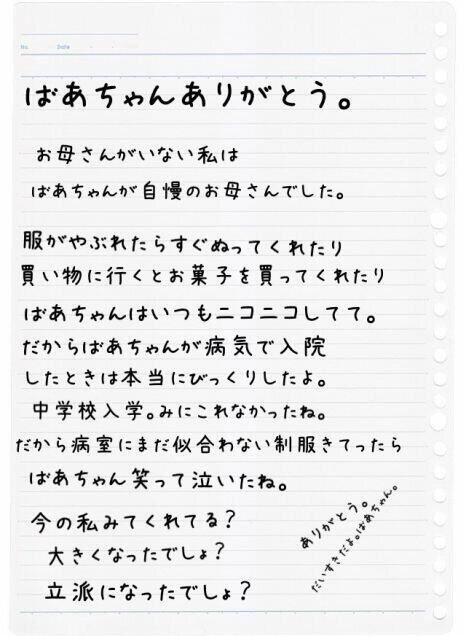 No.
Date
ばあちゃんありがとう。
お母さんがいない私は
ばあちゃんが自慢のお母さんでした。
服がやぶれたらすぐぬってくれたり
買い物に行くとお菓子を買ってくれたり
ばあちゃんはいつもニコニコしてて。
だからばあちゃんが病気で入院
したときは本当にびっくりしたよ。
中学校入学。みにこれなかったね。
だから病室にまだ似合わない制服きてったら
ばあちゃん笑って泣いたね。
今の私みてくれてる?
大きくなったでしょ?
立派になったでしょ?
ありがとう。
だいすきだよ。ばあちゃん。